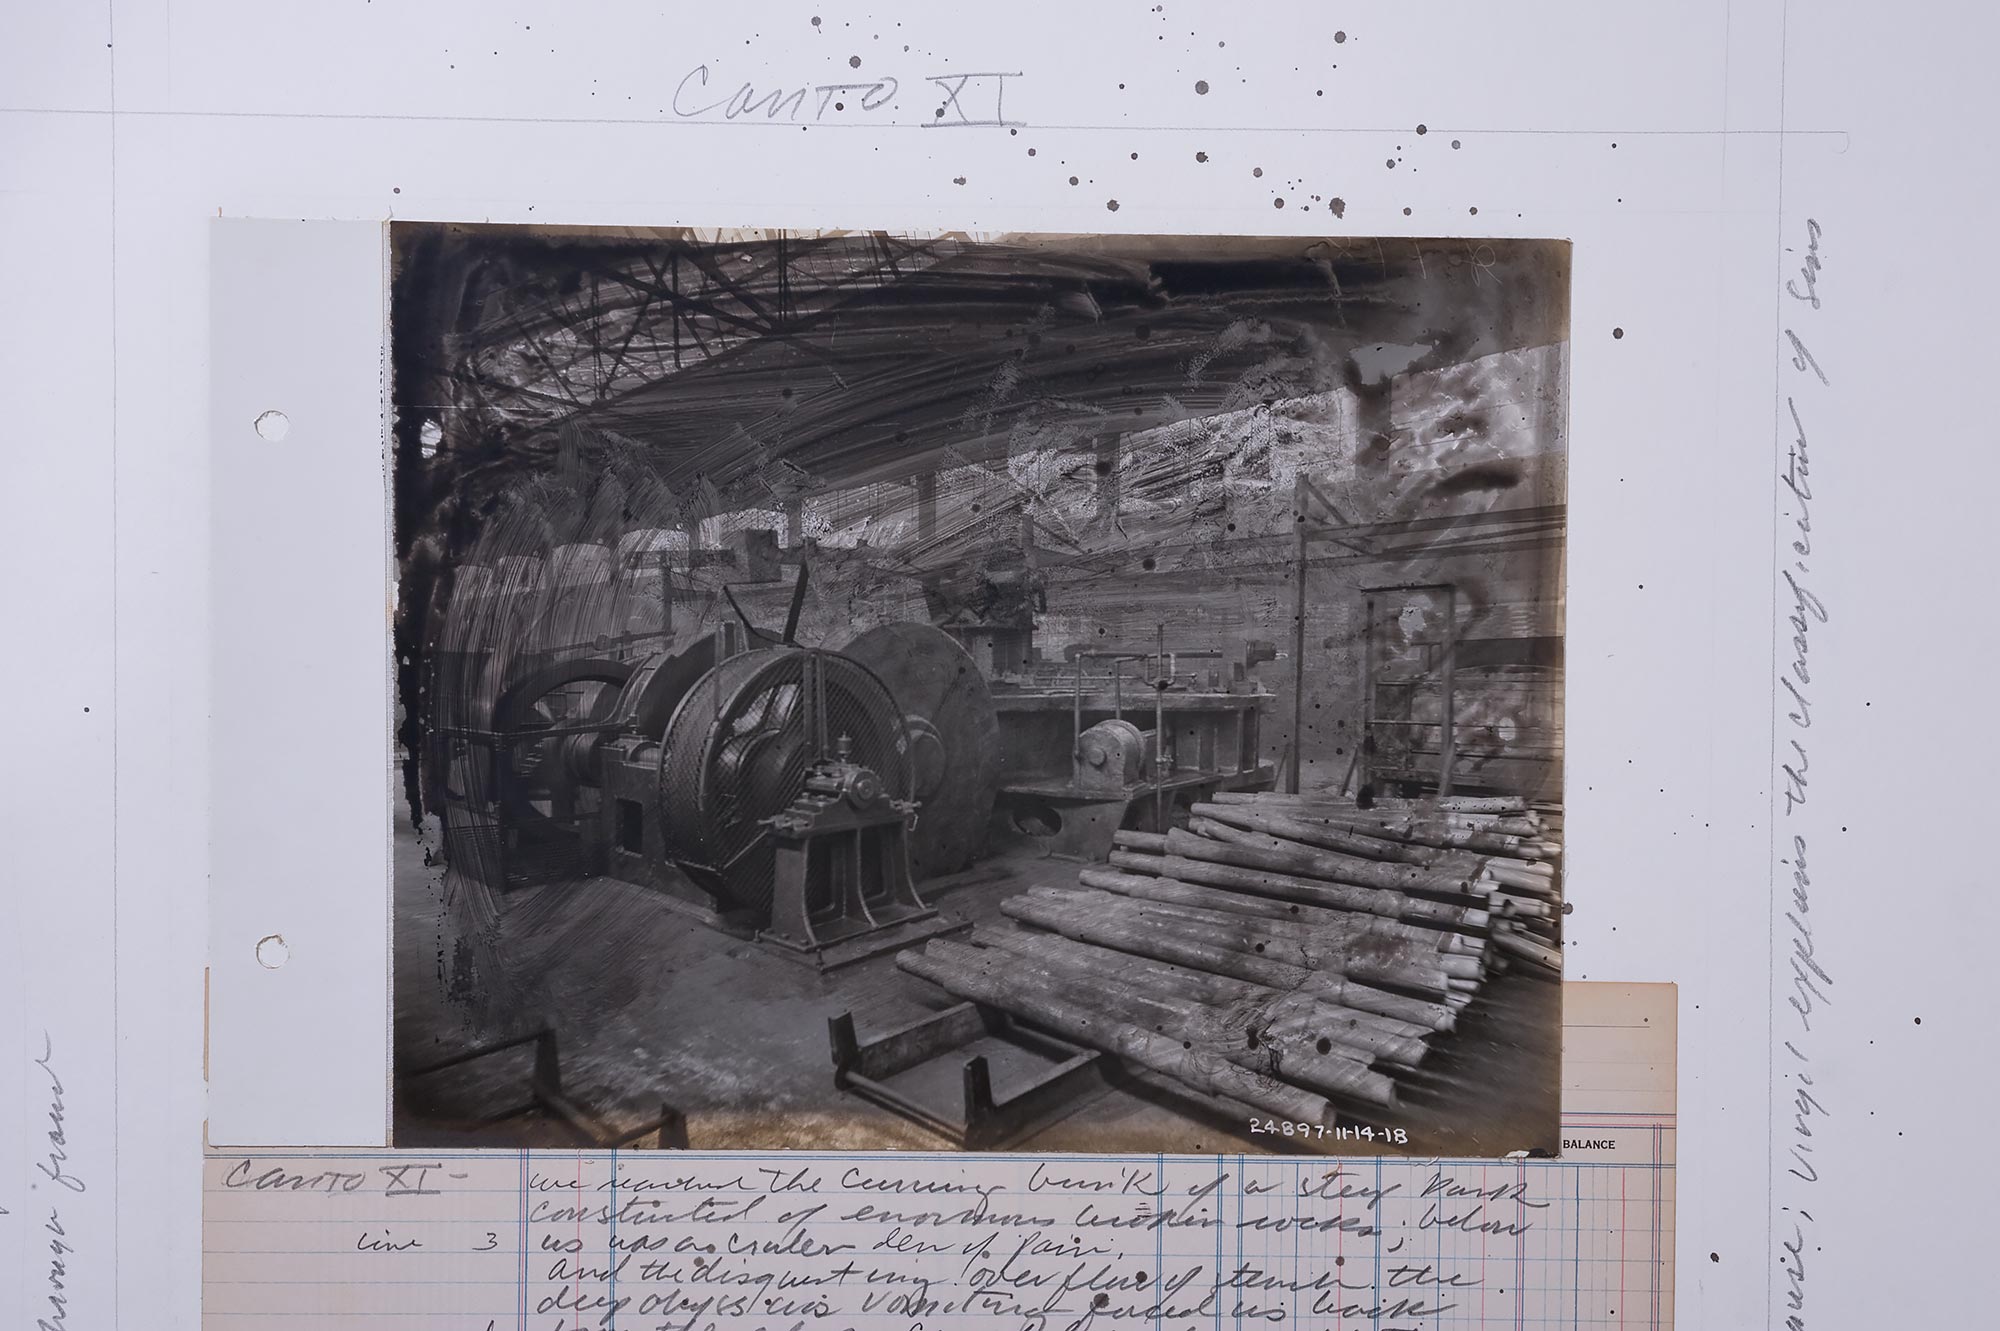 CANTO XI
Virgil explains the classification of Sins
through fraud
24897-11-14-18
BALANCE
CANTO XI - we reached the Curving brink of a steep bank
constructed of enormous broken rocks; below
line 3 us was a crueler den of pain.
and the disgusting overflow of stench the
deep abyss was vomiting forced us back